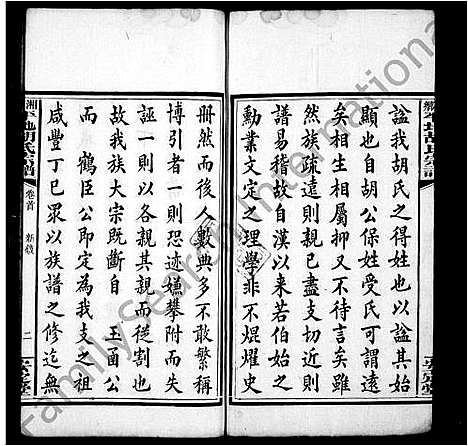 諡我胡氏之得姓也以諡其始
顯也自胡公保姓受氏可謂遠
矣相生相屬抑又不待言矣雖
然族疏遠則親已盡支切近則
譜易稽故自漢以來若伯始之
勳業文定之理學非不焜燿史
冊然而後人數典多不敢繁稱
博引者一則恐迹嫌攀附而失
誣一則以各親其親而從割也
故我族大宗既斷自 玉甬公
而 鶴臣公即定為我支之祖
咸豐丁巳眾以族譜之修迄無
湘鄉平地胡氏宗譜
卷首
新敘
二
FamilySearch International